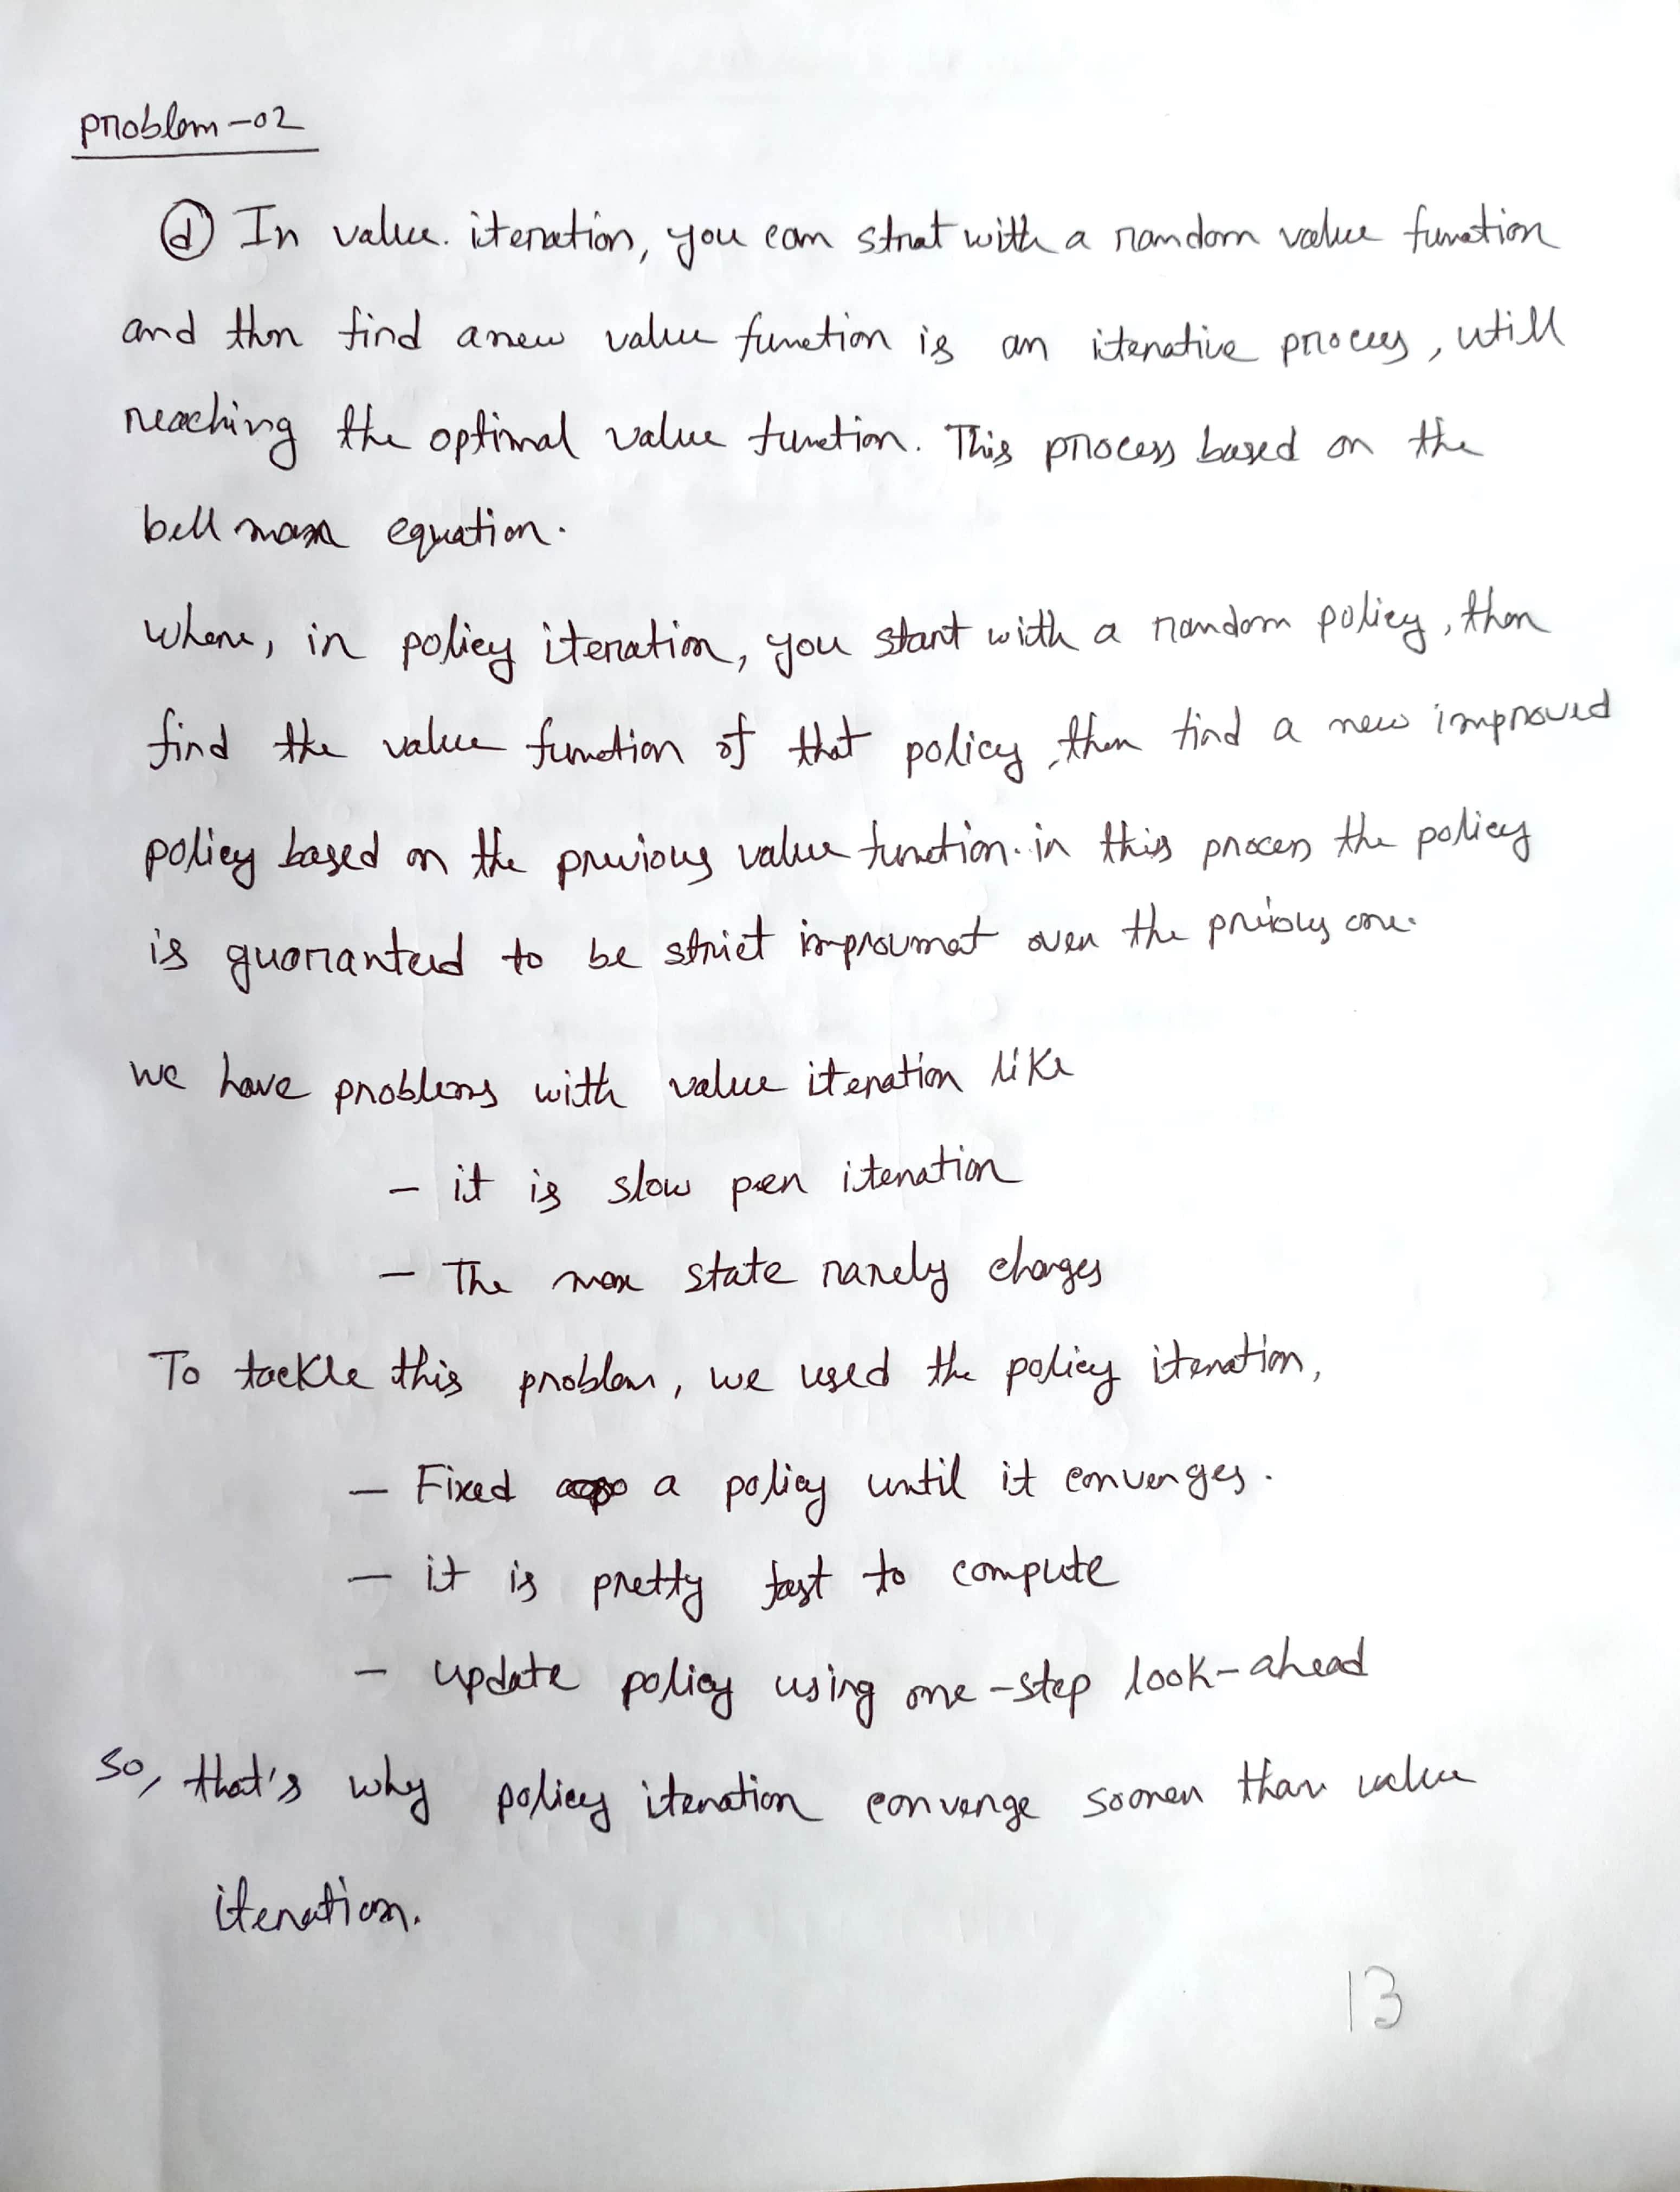 problem-02
(d) In value. iteration, you can strat with a random value function
and then find a new value function is an iterative process, utill
reaching the optimal value function. This process based on the
bell man equation.
where, in policy iteration, you start with a random policy, then
find the value function of that policy, then find a new improved
policy based on the previous value function. in this process the policy
is guarranteed to be strict improvment over the previous one.
we have problems with value iteration like
- it is slow per iteration
- The max state rarely changes
To tackle this problem, we used the policy iteration,
- Fixed a policy until it converges.
- it is pretty fast to compute
- update policy using one-step look-ahead
so, that's why policy iteration converge sooner than value
iteration.
13